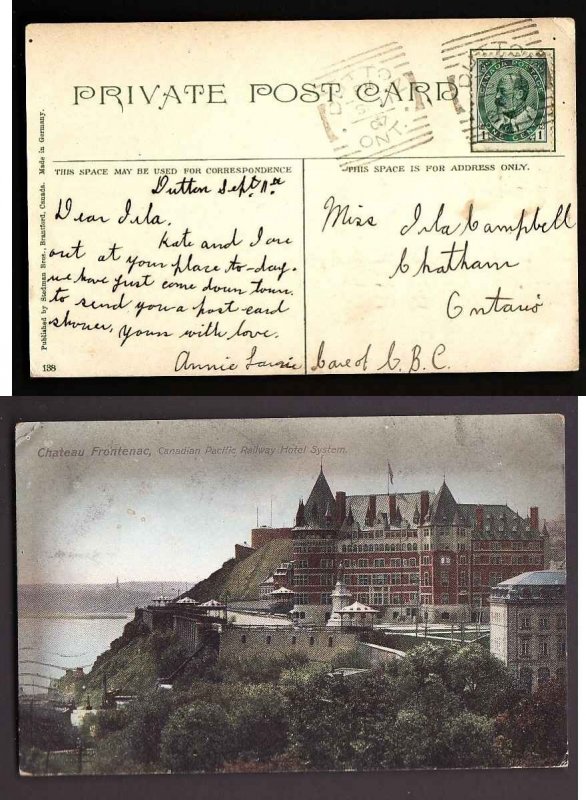 PRIVATE POST CARD
CANADA POSTAGE
THIS SPACE MAY BE USED FOR CORRESPONDENCE
THIS SPACE IS FOR ADDRESS ONLY.
Published by Stedman Bros., Brantford, Canada. Made in Germany.
138
Dutton Sept 1st
Dear Isla.
Kate and I are
out at your place to-day.
we have just come down town.
to send you a post-card
shower, yours with love.
Annie Laurie
Miss Isla Campbell
Chatham
Ontario
Care of C. B. C.
DUTTON
ONT.
DUTTON
1 1
Chateau Frontenac, Canadian Pacific Railway Hotel System.